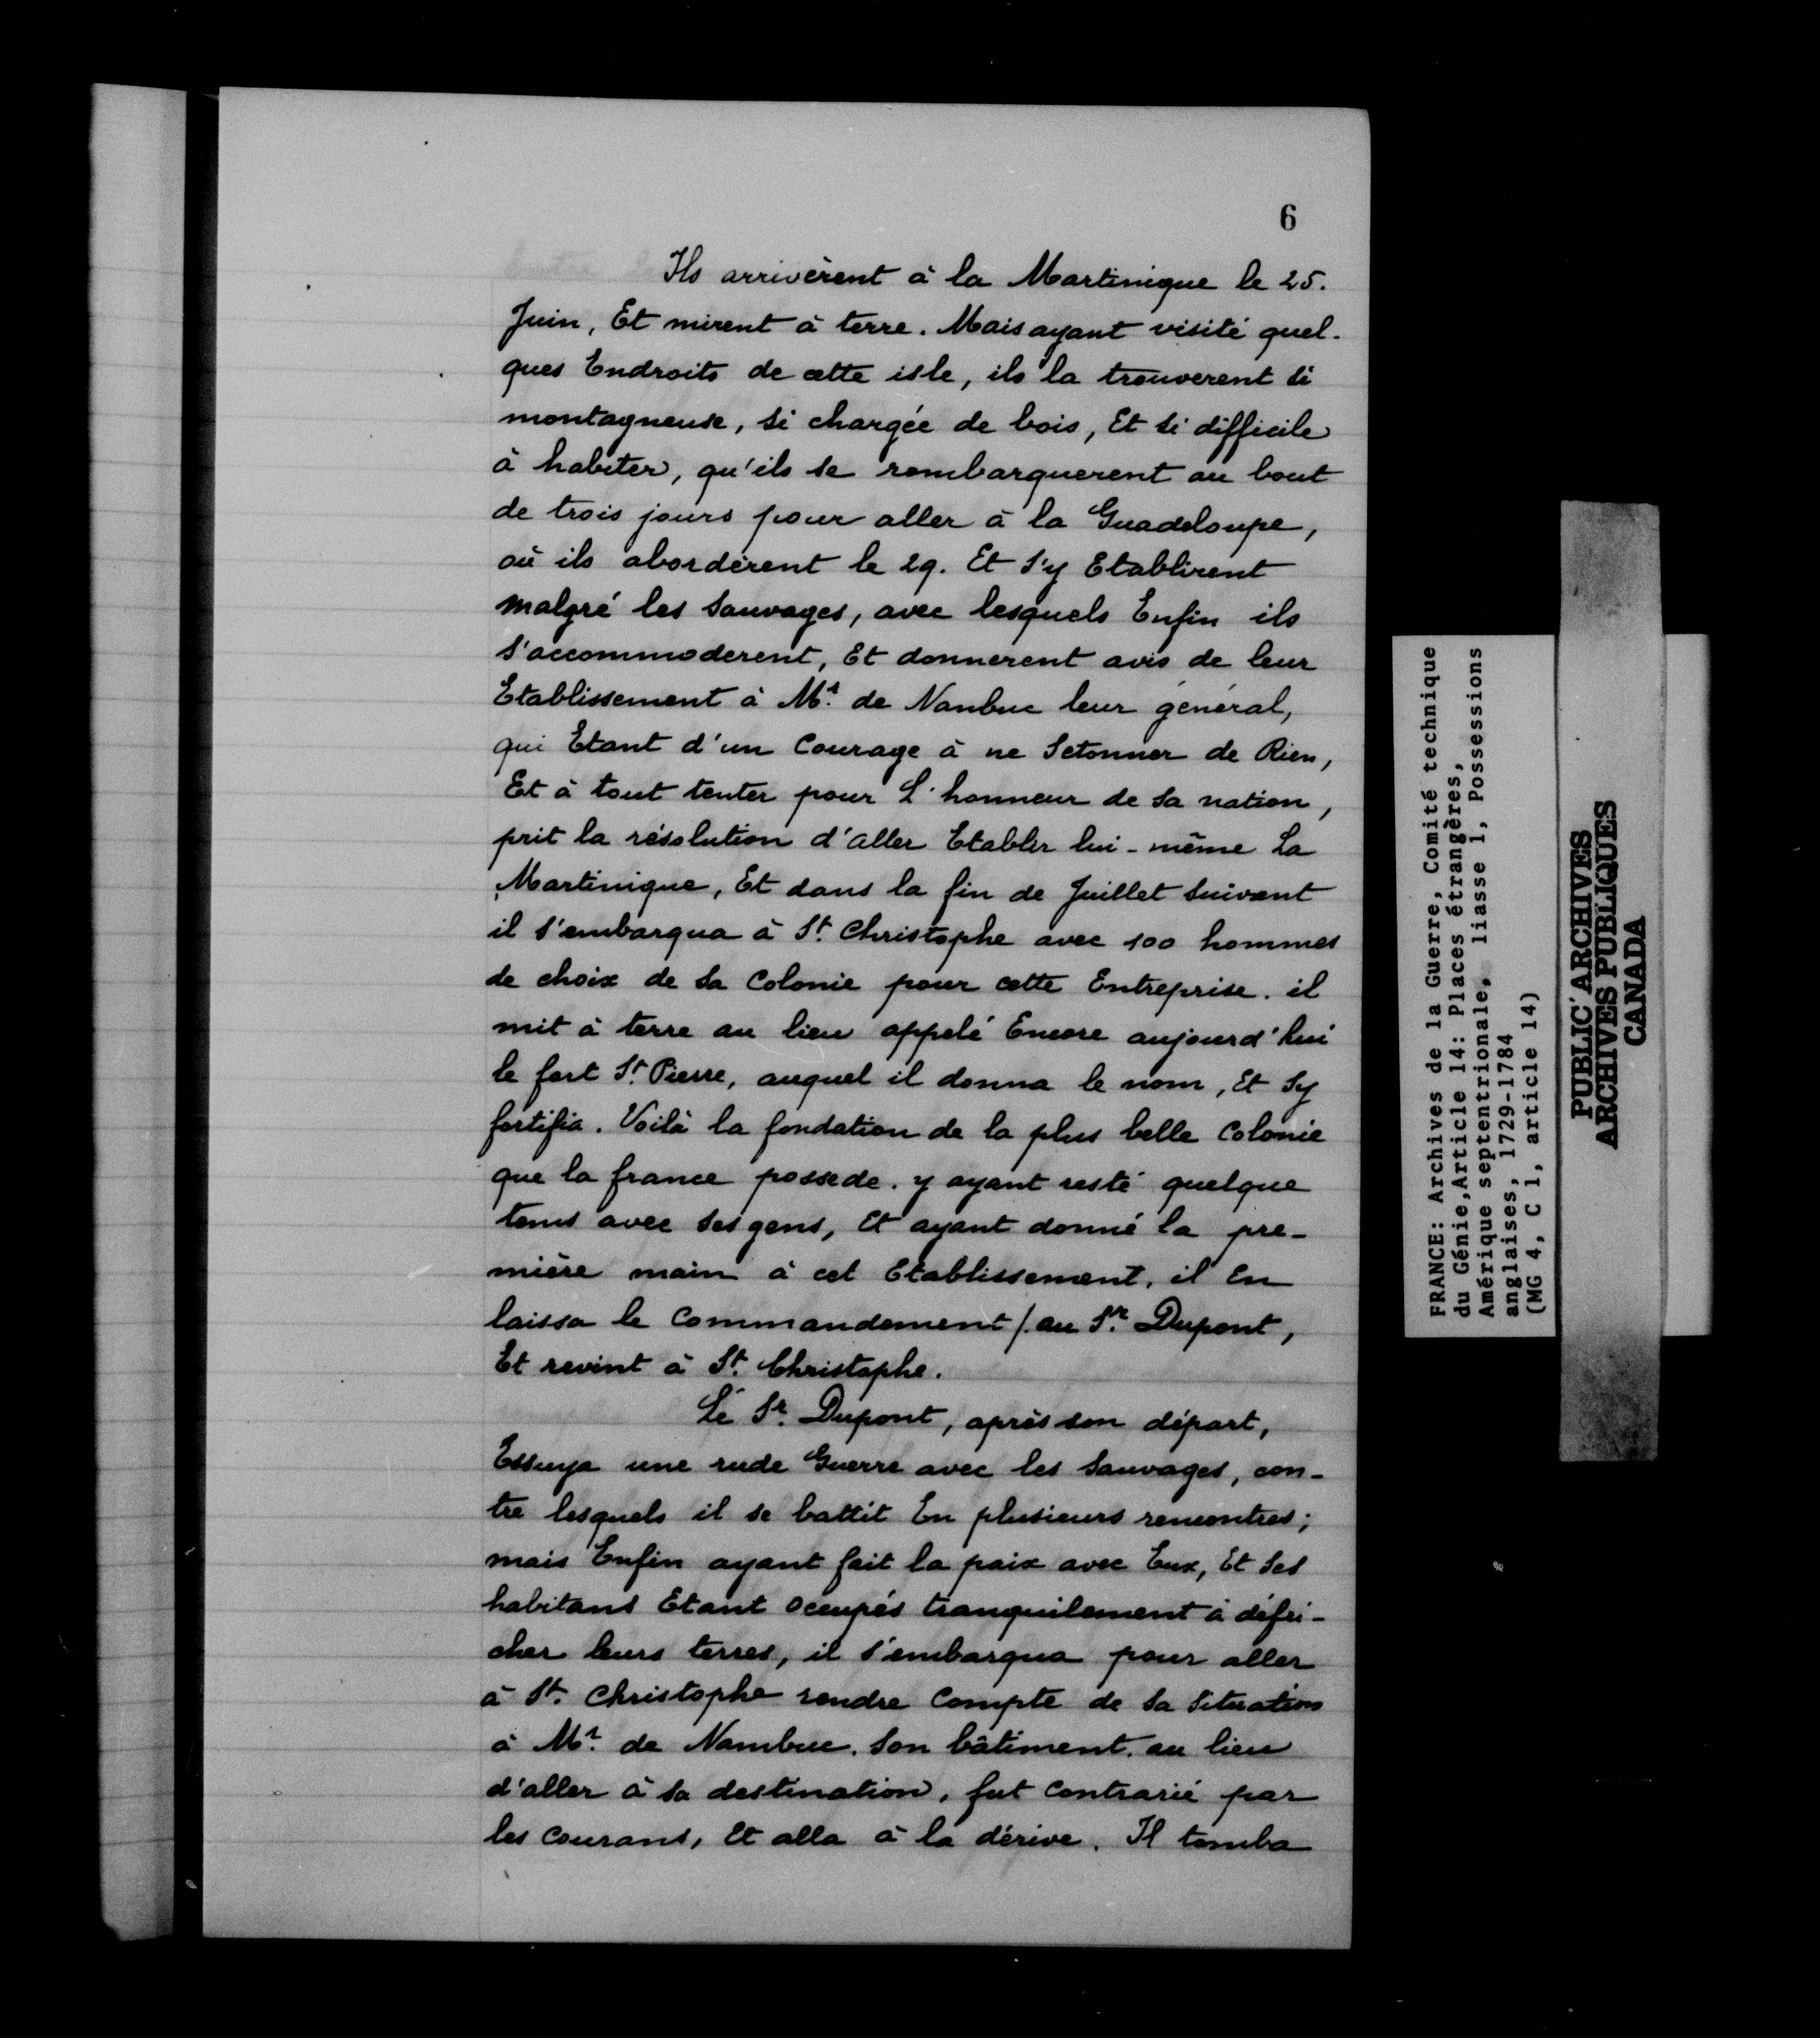 6
Ils arrivèrent à la Martinique le 25.
Juin, Et mirent à terre. Mais ayant visité quel-
ques Endroits de cette isle, ils la trouverent si
montagneuse, si chargée de bois, Et si difficile
à habiter, qu'ils se rembarquerent au bout
de trois jours pour aller à la Guadeloupe,
où ils abordèrent le 29. Et s'y Etablirent
malgré les Sauvages, avec lesquels Enfin ils
s'accommoderent, Et donnerent avis de leur
Etablissement à Mr. de Nanbuc leur général,
qui Etant d'un Courage à ne Setonner de Rien,
Et à tout tenter pour L'honneur de sa nation,
prit la résolution d'aller Etablir lui-même La
Martinique, Et dans la fin de Juillet suivant
il s'embarqua à St. Christophe avec 100 hommes
de choix de sa Colonie pour cette Entreprise. il
mit à terre au lieu appelé Encore aujourd'hui
le fort St. Pierre, auquel il donna le nom, Et Sy
fortifia. Voilà la fondation de la plus belle Colonie
que la france possede. y ayant resté quelque
tems avec ses gens, Et ayant donné la pre-
mière main à cet Etablissement, il En
laissa le Commandement /. au Sr. Dupont,
Et revint à St. Christophe.
Le Sr. Dupont, après son départ,
Essuya une rude Guerre avec les Sauvages, con-
tre lesquels il se battit En plusieurs rencontres;
mais Enfin ayant fait la paix avec Eux, Et Ses
habitans Etant occupés tranquilement à défri-
cher leurs terres, il s'embarqua pour aller
à St. Christophe rendre Compte de sa Situation
à Mr. de Nambuc. Son bâtiment. au lieu
d'aller à sa destination, fut Contrarié par
les Courans, Et alla à la dérive. Il tomba
FRANCE: Archives de la Guerre, Comité technique
du Génie,Article 14: Places étrangères,
Amérique septentrionale, liasse 1, Possessions
anglaises, 1729-1784
(MG 4, C 1, article 14)
PUBLIC ARCHIVES
ARCHIVES PUBLIQUES
CANADA